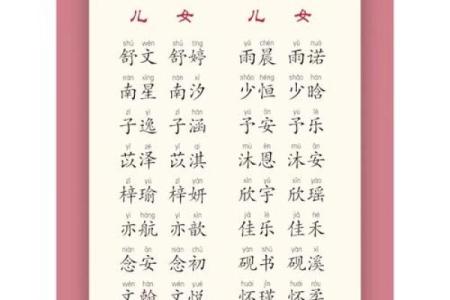 儿 女 儿 女
shū wén shū tíng yǔ chén yǔ nuò
舒文 舒婷 雨晨 雨诺
nán xīng nán xī shǎo héng shǎo hán
南星 南汐 少恒 少晗
zǐ yì zǐ hán yǔ ān yǔ lè
子逸 子涵 予安 予乐
yǐ zé yǐ qí mù ēn mù ān
苡泽 苡淇 沐恩 沐安
zǐ yú zǐ yán xīn yǔ xīn yáo
梓瑜 梓妍 欣宇 欣瑶
yì háng yì xīn jiā lè jiā hé
亦航 亦歆 佳乐 佳禾
niàn ān niàn chū yàn shū yàn xī
念安 念初 砚书 砚溪
wén hàn wén yuè huái jǐn huái xī
文翰 文悦 怀瑾 怀